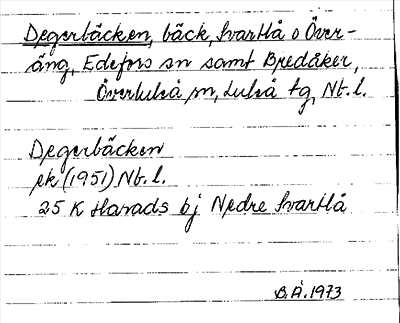 Degerbäcken, bäck, Svartlå o Över-
äng, Edefors sn samt Bredåker,
Överluleå sn, Luleå tg, Nb. l.
Degerbäcken
ek (1951) Nb. l.
25 K Harads bj Nedre Svartlå
B.Å. 1973